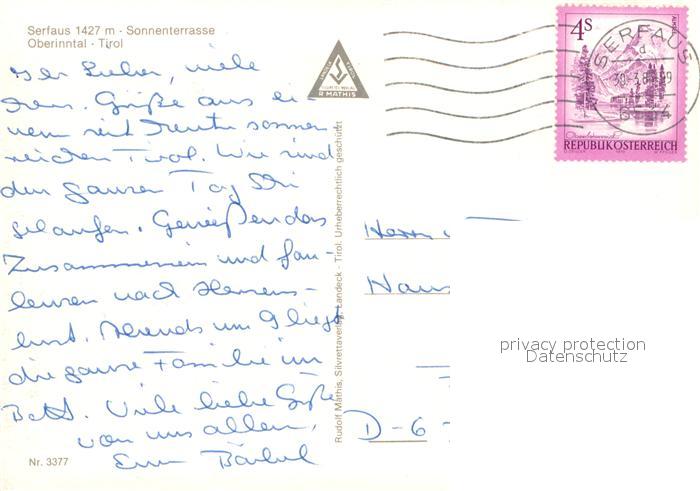 Serfaus 1427 m - Sonnenterrasse
Oberinntal - Tirol
Lieber, viele
Grüße aus ei-
nem seit heute sonnen-
reichen Tirol. Wir sind
den ganzen Tag Ski
gelaufen. Genießen das
Zusammensein und fau-
lenzen nach Herzens-
lust. Abends um 9 liegt
die ganze Familie im
Bett. Viele liebe Grüße
von uns allen,
Eure Bärbel
Nr. 3377
R MATHIS
Rudolf Mathis, Silvrettaverlag Landeck - Tirol. Urheberrechtlich geschützt
4S
REPUBLIK ÖSTERREICH
SERFAUS
Herrn
Hans
D-6
privacy protection
Datenschutz